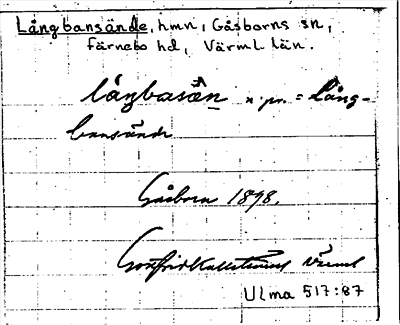 Långbansände, hmn, Gåsborns sn,
Färnebo hd, Värml. län.
långbasän n. pr. = Lång-
bansände
Gåsborn 1898.
Gottfrid Kallstenius Värml
Ulma 517:87